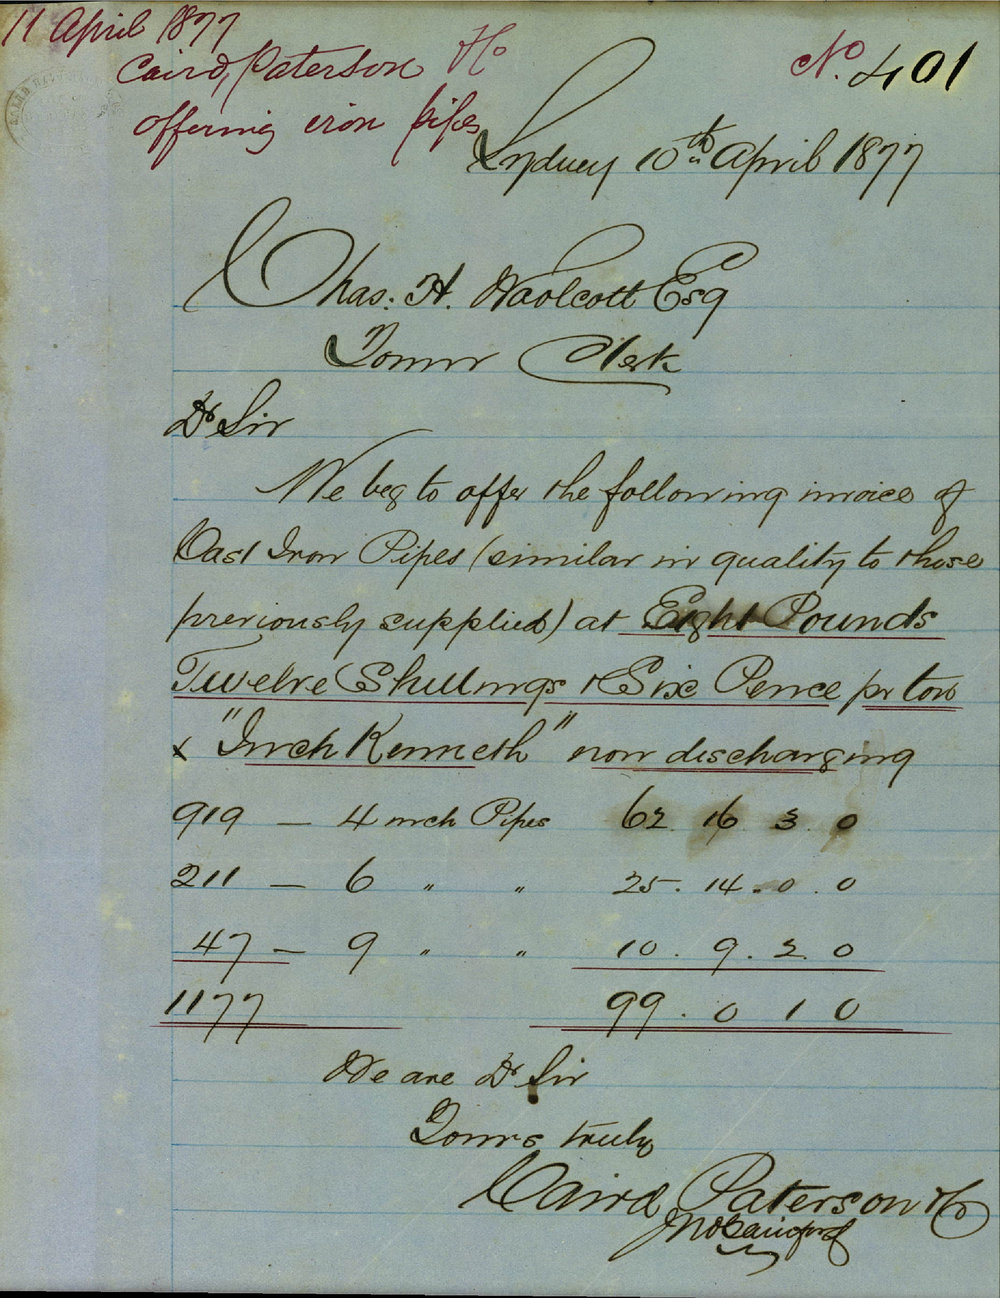 11 April 1877
Caird, Paterson & Co
offering iron pipes
No. 401
Sydney 10th April 1877
Chas. H. Woolcott Esq
Town Clerk
Dr Sir
We beg to offer the following invoice of
Cast Iron Pipes (similar in quality to those
previously supplied) at Eight Pounds
Twelve Shillings & Six Pence pr ton
x "Inch Kenneth" now discharging
919 — 4 inch Pipes 62. 16 3. 0
211 — 6 " " 25. 14. 0. 0
47 — 9 " " 10. 9. 2. 0
1177 99. 0 1 0
We are Dr Sir
Yours truly
Caird Paterson & Co